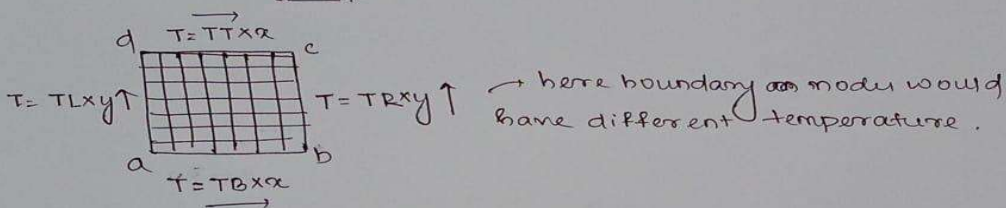 T= TT×x
d c
T= TL×y↑ T= TR×y ↑ → here boundary nodes would
have different temperature.
a b
T= TB×x